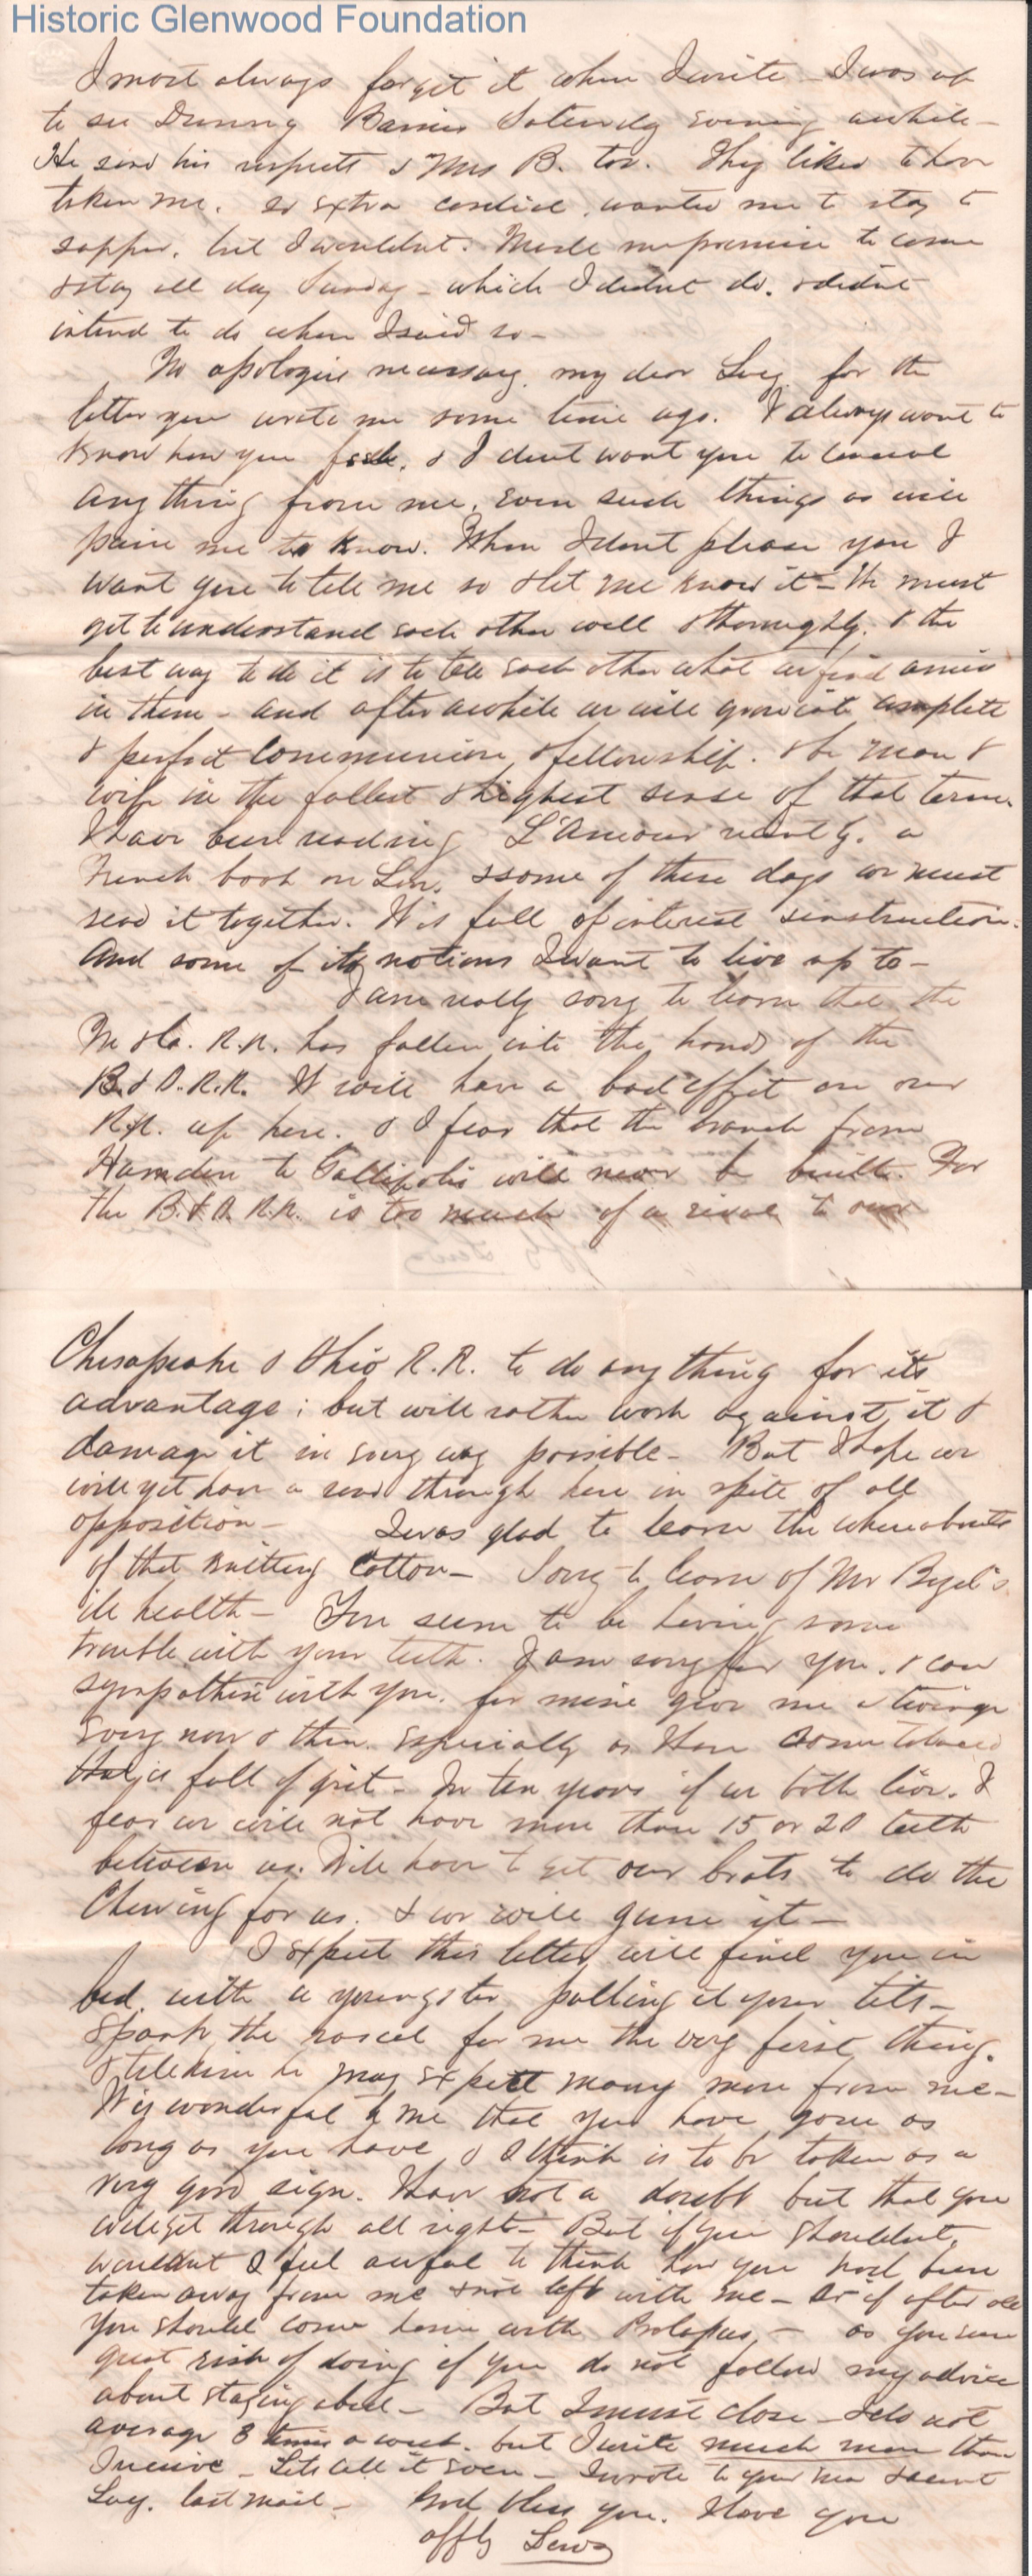 Historic Glenwood Foundation
I most always forget it when I write - I was up
to see Barnes Saturday evening awhile -
He send his respects & Mrs B. too. They liked to have
taken me. so extra cordial, wanted me to stay to
supper, but I wouldnt. Made me promise to come
& stay all day Sunday - which I didnt do. & didnt
intend to do when I said so -
No apologies necessary, my dear Lucy for the
letter you wrote me some time ago. I always want to
know how you feel, & I dont want you to conceal
anything from me, even such things as will
pain me to know. When I dont please you I
want you to tell me so & let me know it - We must
get to understand each other well & thoroughly. & the
best way to do it is to tell each other what we find amiss
in them - and after awhile we will grow into complete
& perfect communion & fellowship. & be man &
wife in the fullest & highest sense of that term.
I have been reading L'Amour recently. a
French book on Love, & some of these days we must
read it together. It is full of interest & instruction.
And some of its notions I want to live up to -
I am really sorry to learn that the
M & Ca. R.R. has fallen into the hands of the
B. & O. R.R. It will have a bad effect on our
R.R. up here. & I fear that the branch from
Hamden to Gallipolis will never be built. For
the B. & O. R.R. is too much of a rival to our
Chesapeake & Ohio R.R. to do any thing for its
advantage; but will rather work against it &
damage it in every way possible - But I hope we
will yet have a road through here in spite of all
opposition - I was glad to learn the whereabouts
of that knitting cotton - Sorry to learn of Mr
ill health - You seem to be having some
trouble with your teeth. I am sorry for you. & can
sympathise with you, for mine give me a twinge
every now & then. especially as I have some tobacco
that is full of grit - In ten years if we both live. I
fear we will not have more than 15 or 20 teeth
between us. Will have to get our brats to do the
chewing for us. & we will gum it -
I expect this letter will find you in
bed, with a youngster pulling at your tits -
Spank the rascal for me the very first thing.
& tell him he may expect many more from me -
It is wonderful to me that you have gone as
long as you have & I think is to be taken as a
very good sign. Have not a doubt but that you
will get through all right - But if you shouldnt,
wouldnt I feel awful to think how you had been
taken away from me & not left with me - Or if after all
you should come home with Prolapsus, - as you run
great risk of doing if you do not follow my advice
about staying abed - But I must close - I do not
average 3 times a week. but I write much more than
I receive - Lets call it even - I wrote to your ma & aunt
Lucy. last mail - God bless you. I love you
affly Lewis